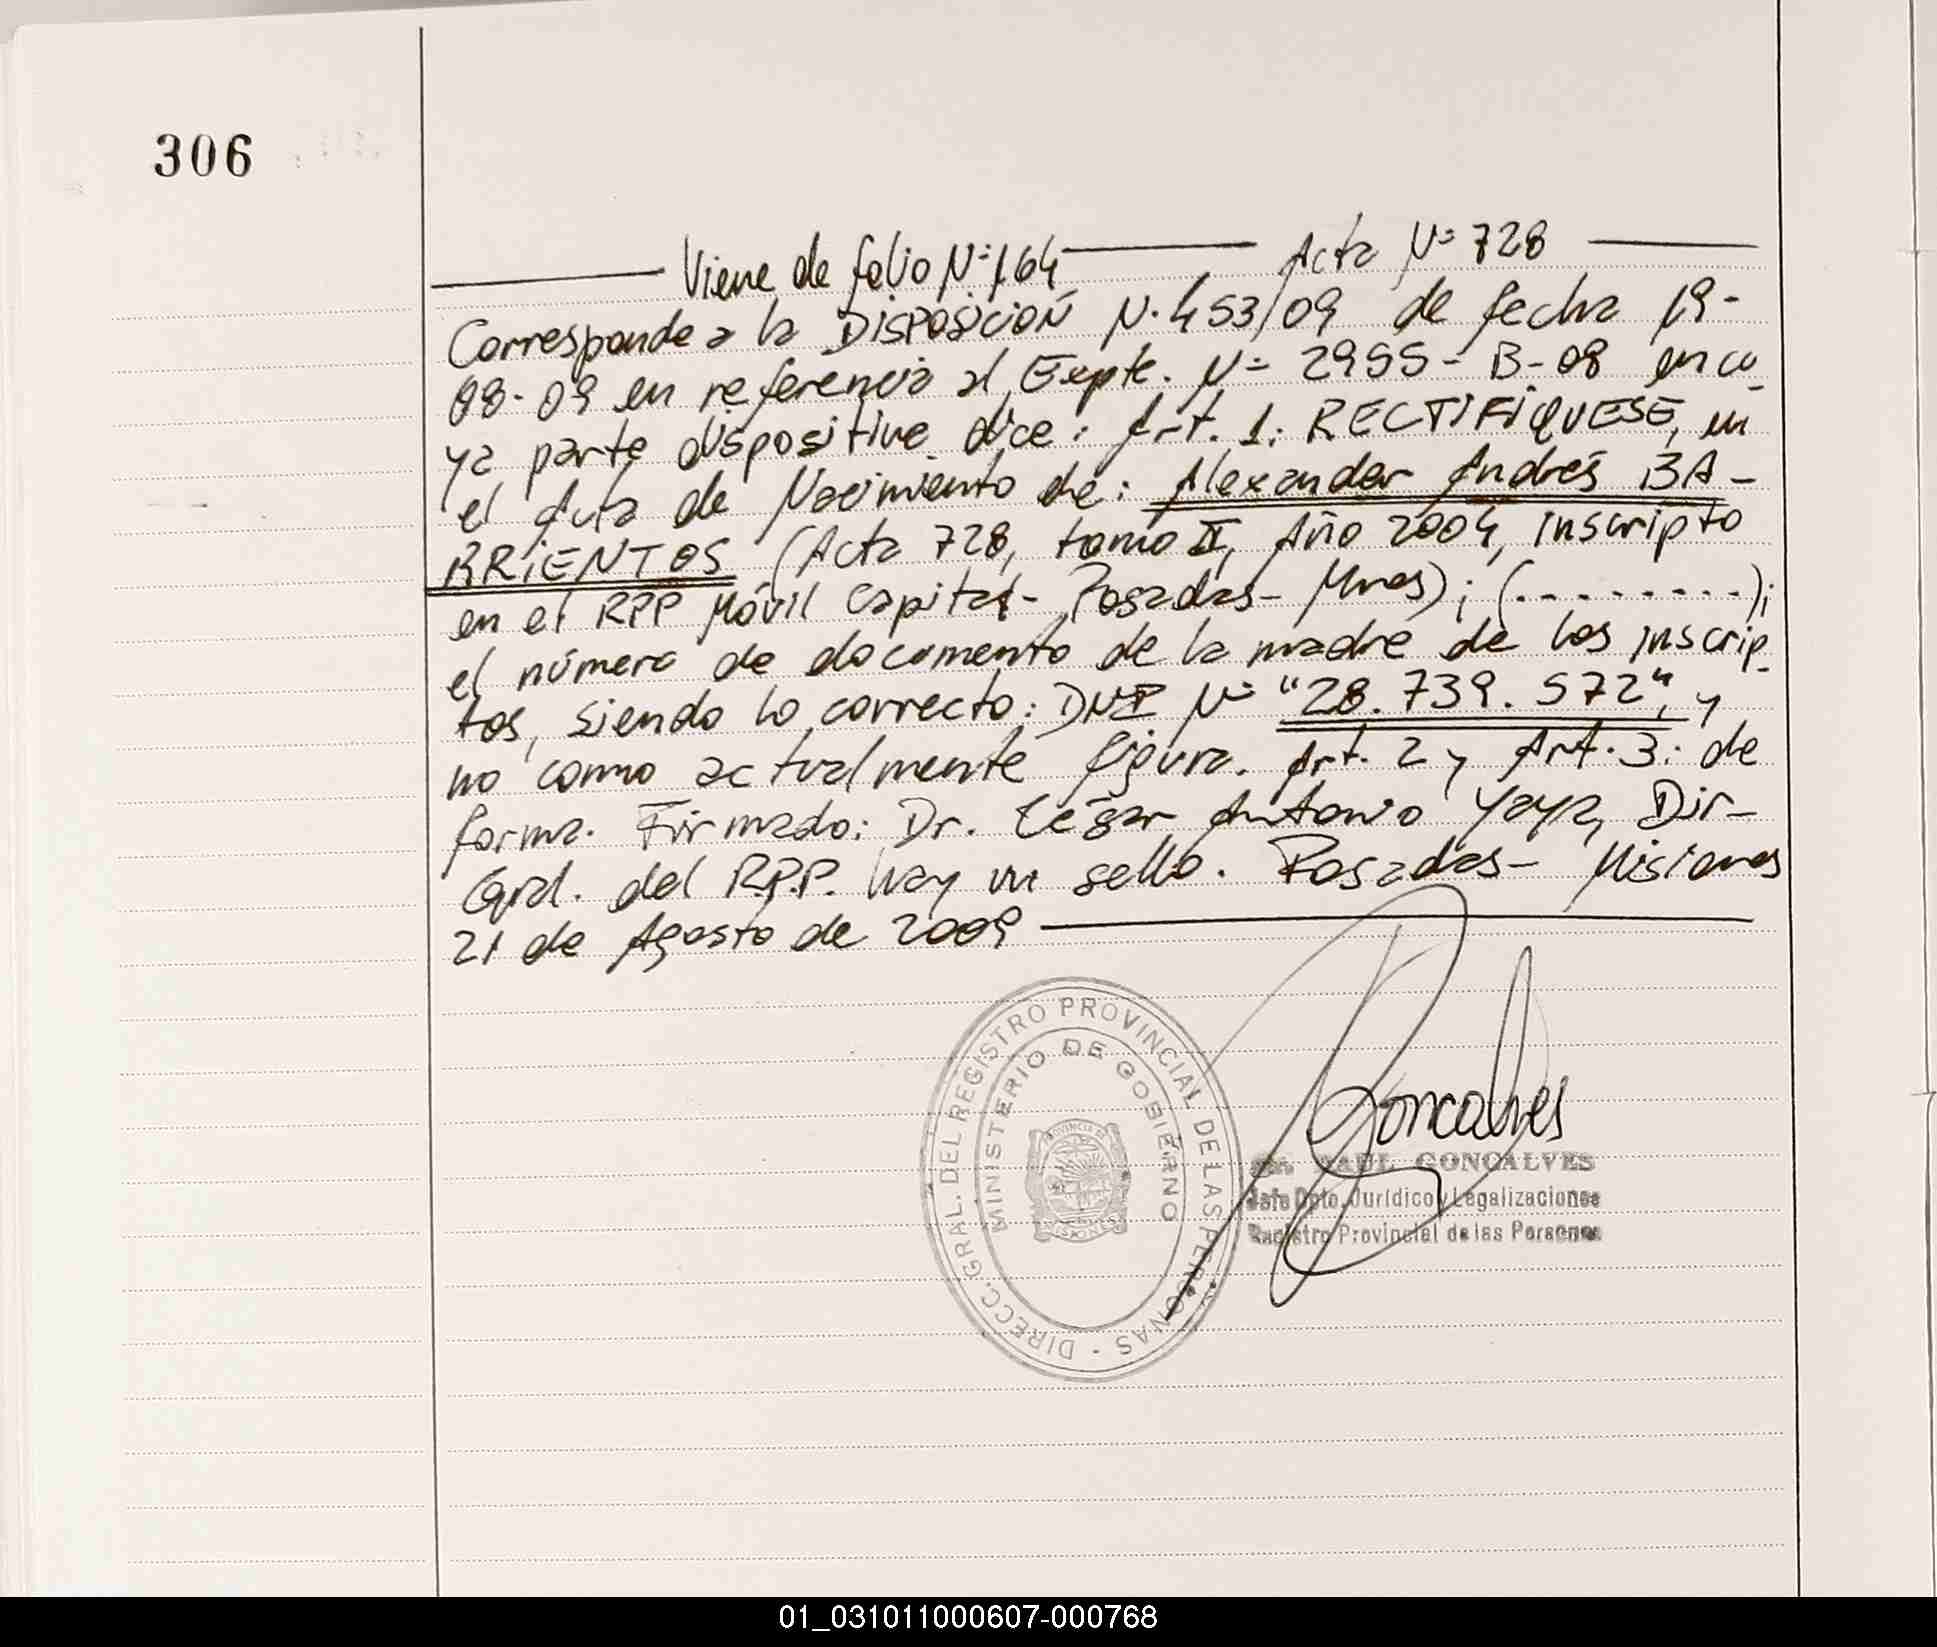 306
Viene de folio Nº 164 Acta Nº 728
Corresponde a la DISPOSICIÓN N. 453/09 de fecha 19-
08-09 en referencia al Expte. Nº 2955-B-08 en cu
ya parte dispositiva dice: Art. 1: RECTIFÍQUESE, en
el Acta de Nacimiento de: Alexander Andrés BA-
RRIENTOS (Acta 728, tomo II, Año 2004, inscripto
en el RPP Móvil Capital- Posadas- Mnes); (.........);
el número de documento de la madre de los inscrip-
tos, siendo lo correcto: DNI Nº "28.739.572", y
no como actualmente figura. Art. 2 y Art. 3: de
forma. Firmado: Dr. César Antonio Yaya, Dir-
Gral. del R.P.P. Hay un sello. Posadas- Misiones
21 de Agosto de 2009
DIRECC. GRAL. DEL REGISTRO PROVINCIAL DE LAS PERSONAS -
MINISTERIO DE GOBIERNO
PROVINCIA DE
MISIONES
Goncalves
RAUL GONCALVES
Jefe Dpto. Jurídico y Legalizaciones
Registro Provincial de las Personas
01_031011000607-000768